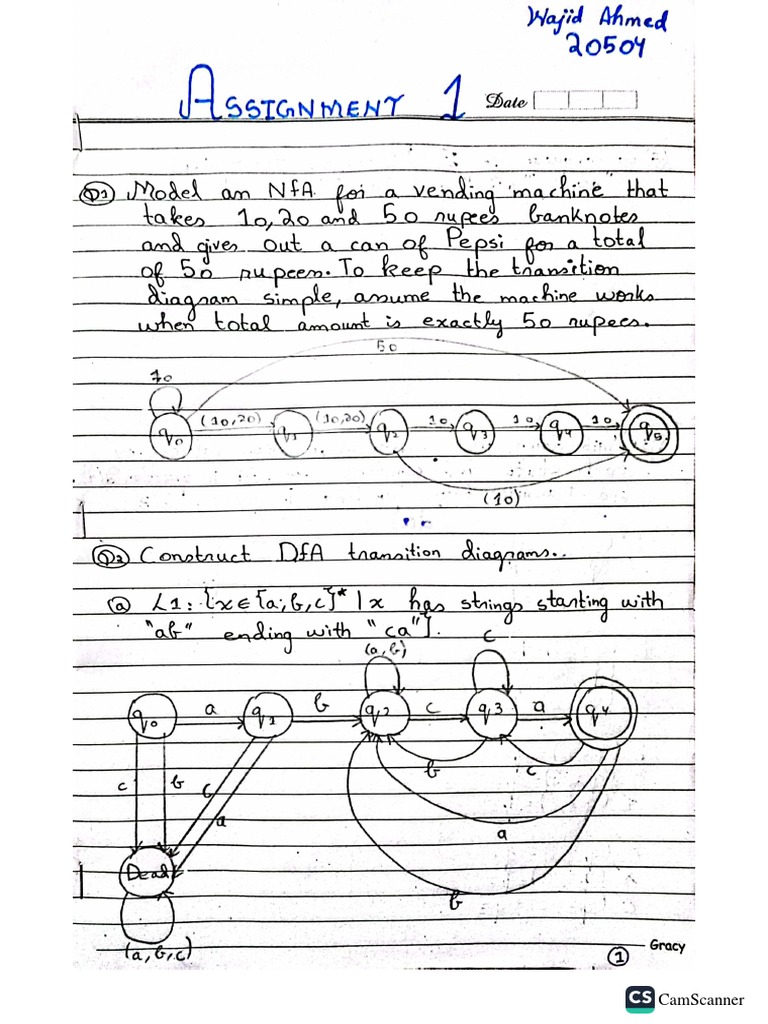 Wajid Ahmed
20504
ASSIGNMENT 1 Date
Q1 Model an NfA for a vending machine that
takes 10, 20 and 50 rupees banknotes
and gives out a can of Pepsi for a total
of 50 rupees. To keep the transition
diagram simple, assume the machine works
when total amount is exactly 50 rupees.
50
10
q0 (10,20) q1 (10,20) q2 10 q3 10 q4 10 q5
(10)
Q2 Construct DfA transition diagrams..
a L1: {x∈{a,b,c}* | x has strings starting with
"ab" ending with "ca"}.
(a,b) c
q0 a q1 b q2 c q3 a q4
b c
c b c a
a
Dead
b
(a,b,c)
1 Gracy
CS CamScanner